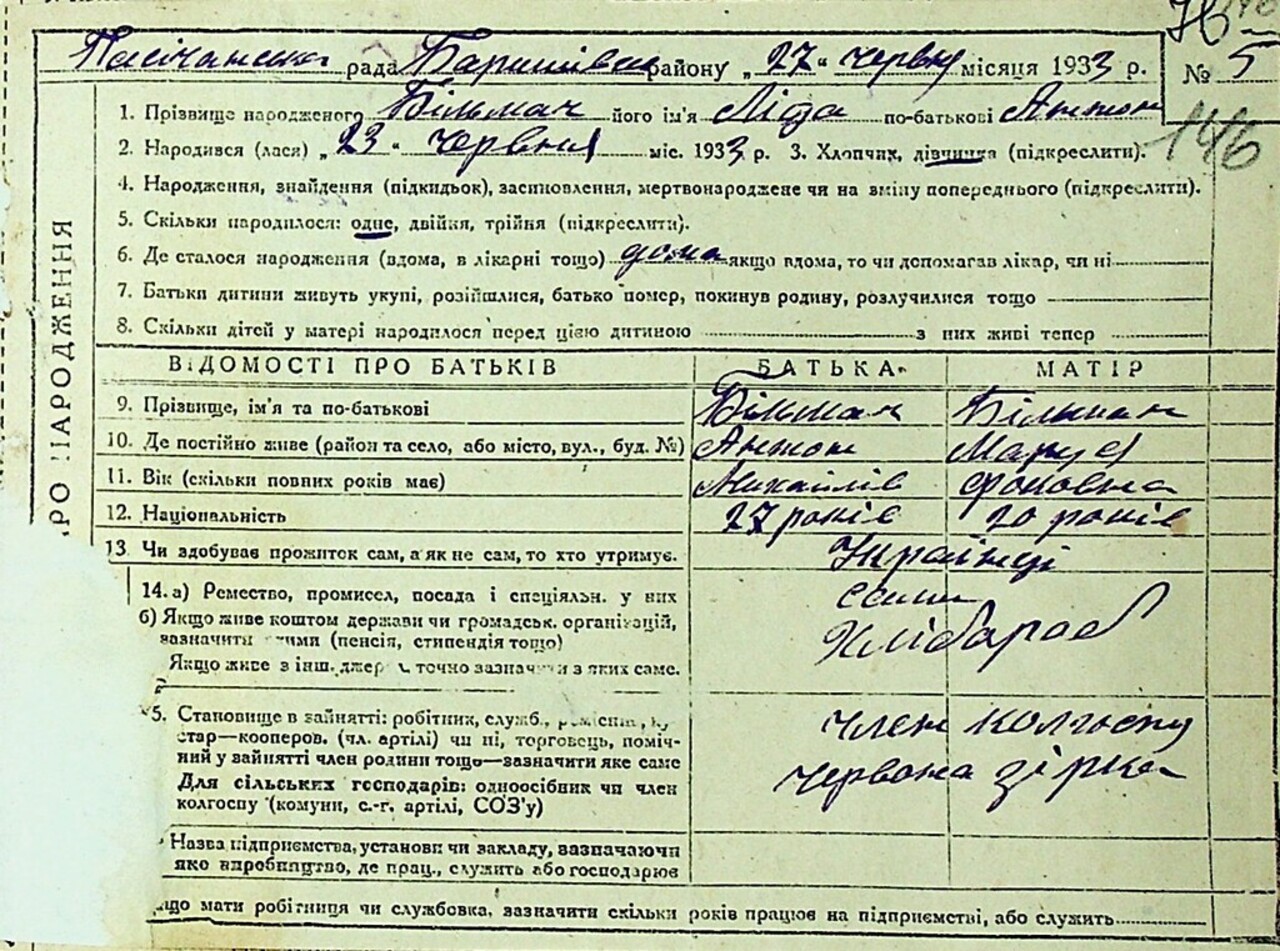 рада Баришівськ району „27“ червня місяця 1933 р. № 5
146
1. Прізвище народженого Більмач його ім'я Ліда по-батькові Антон
2. Народився (лася) „23“ червня міс. 1933 р. 3. Хлопчик, дівчинка (підкреслити).
4. Народження, знайдення (підкидьок), засиновлення, мертвонароджене чи на зміну попереднього (підкреслити).
5. Скільки народилося: одне, двійня, трійня (підкреслити).
6. Де сталося народження (вдома, в лікарні тощо) дома якщо вдома, то чи допомагав лікар, чи ні
7. Батьки дитини живуть укупі, розійшлися, батько помер, покинув родину, розлучилися тощо
8. Скільки дітей у матері народилося перед цією дитиною з них живі тепер
РО НАРОДЖЕННЯ
ВІДОМОСТІ ПРО БАТЬКІВ БАТЬКА МАТІР
9. Прізвище, ім'я та по-батькові Більмач Більмач
10. Де постійно живе (район та село, або місто, вул., буд. №) Антон Маруся
11. Вік (скільки повних років має) Михайлів
12. Національність 27 років 20 років
13. Чи здобуває прожиток сам, а як не сам, то хто утримує. Українці
14. а) Ремество, промисел, посада і спеціяльн. у них сами
б) Якщо живе коштом держави чи громадськ. організацій, Хлібороб
зазначити якими (пенсія, стипендія тощо)
Якщо живе з інш. джер точно зазначити з яких саме.
5. Становище в зайнятті: робітник, служб., член колгоспу
стар—кооперов. (чл. артілі) чи ні, торговець, поміч-
ний у зайнятті член родини тощо—зазначити яке саме червона зірка
Для сільських господарів: одноосібник чи член
колгоспу (комуни, с.-г. артілі, СОЗ'у)
Назва підприємства, установи чи закладу, зазначаючи
яко виробництво, де прац., служить або господарює
що мати робітниця чи службовка, зазначити скільки років працює на підприємстві, або служить